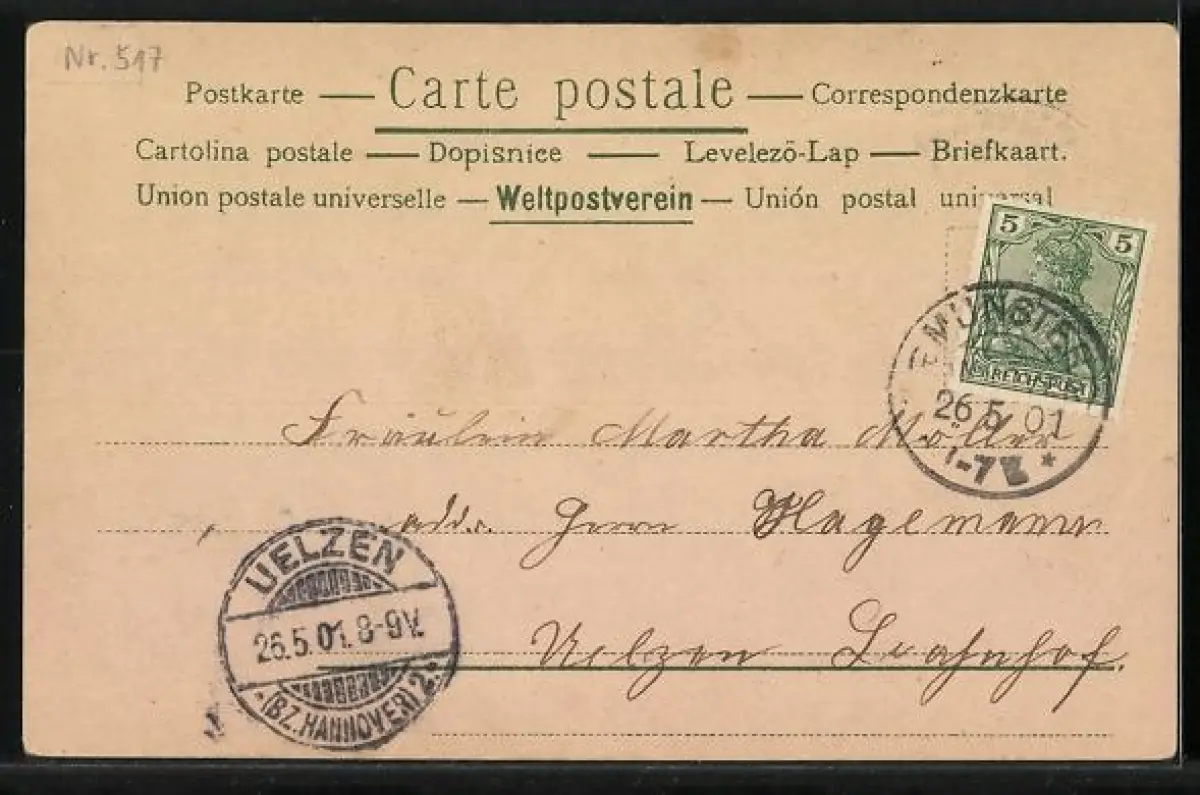 Nr. 517
Postkarte — Carte postale — Correspondenzkarte
Cartolina postale — Dopisnice — Levelező-Lap — Briefkaart.
Union postale universelle — Weltpostverein — Unión postal universal
5 5
REICHSPOST
EMÜNSTER
26 5 01
-7
Fräulein Martha Möller
addr. Herrn Hagemann
Uelzen Bahnhof.
UELZEN
26.5.01. 8-9V.
(BZ. HANNOVER) 2.